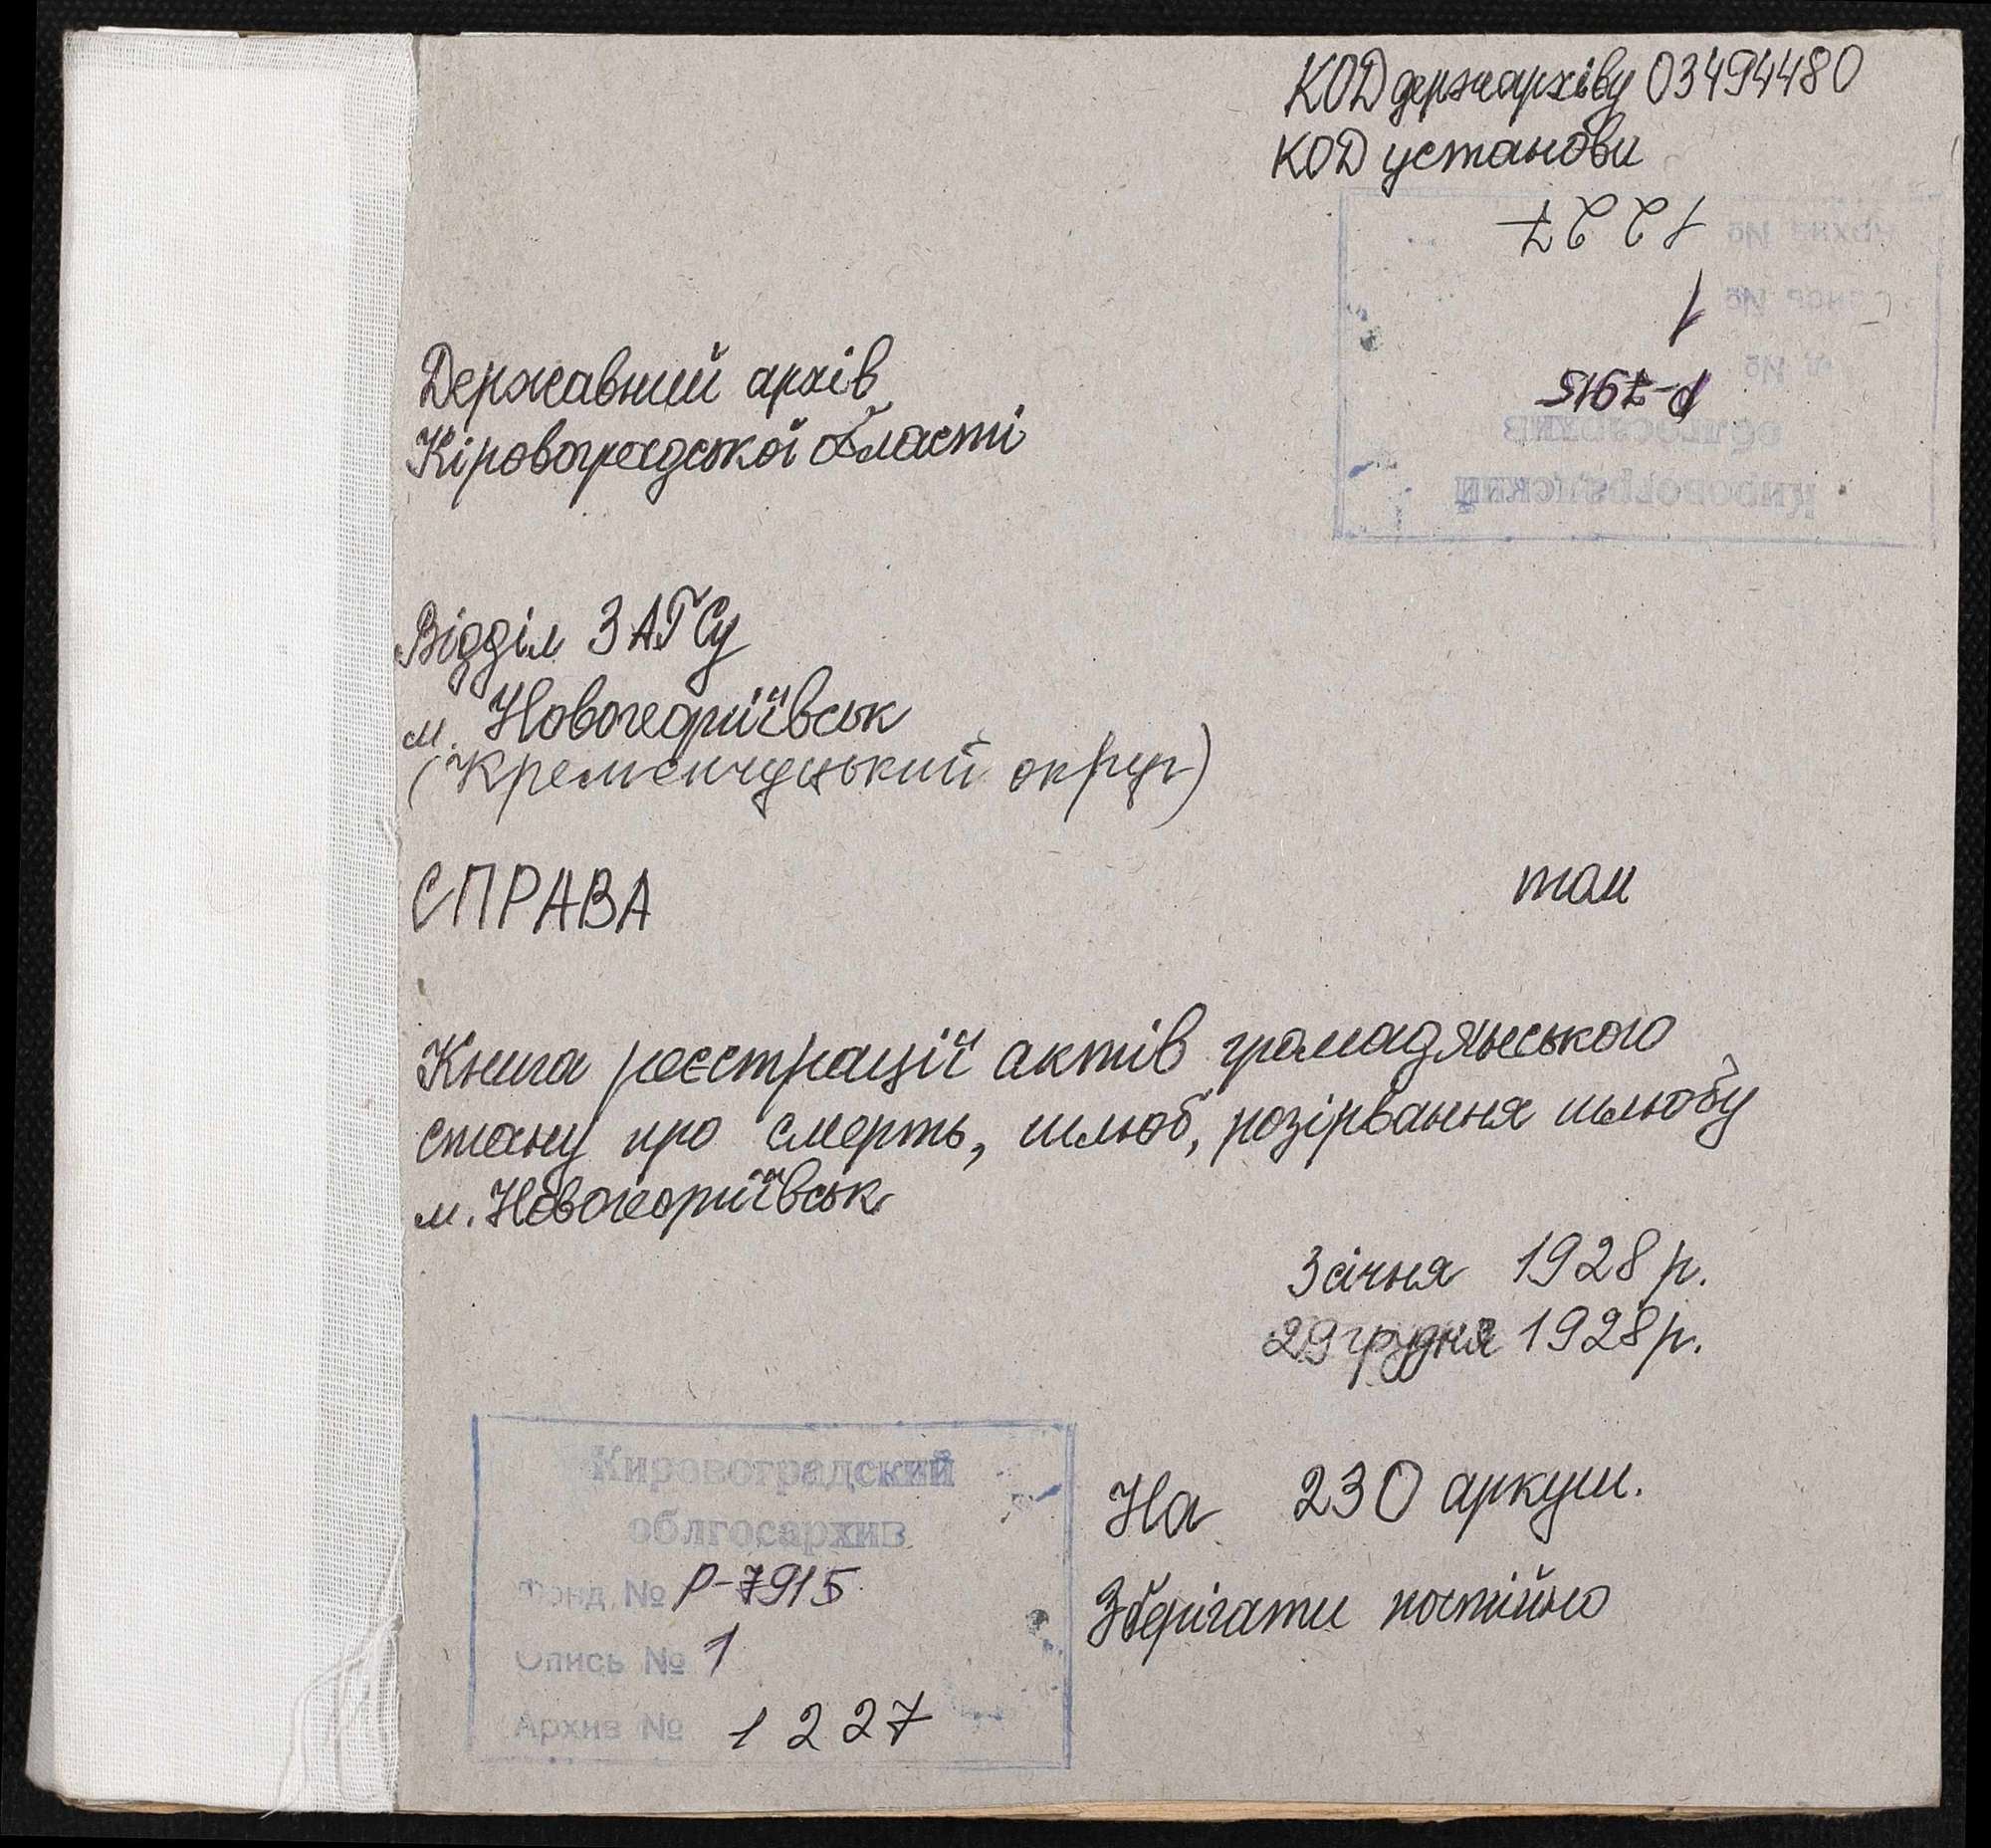 КОД держархіву 03494480
КОД установи
1227
1
Р-7915
облгосархив
Кировоградский
Державний архів
Кіровоградської області
Відділ ЗАГСу
м. Новогеоргіївськ
(Кременчуцький округ)
СПРАВА том
Книга реєстрації актів громадянського
стану про смерть, шлюб, розірвання шлюбу
м. Новогеоргіївськ
3 січня 1928 р.
29 грудня 1928 р.
Кировоградский
облгосархив
Фонд № Р-7915
Опись № 1
Архив № 1227
На 230 аркуш.
Зберігати постійно